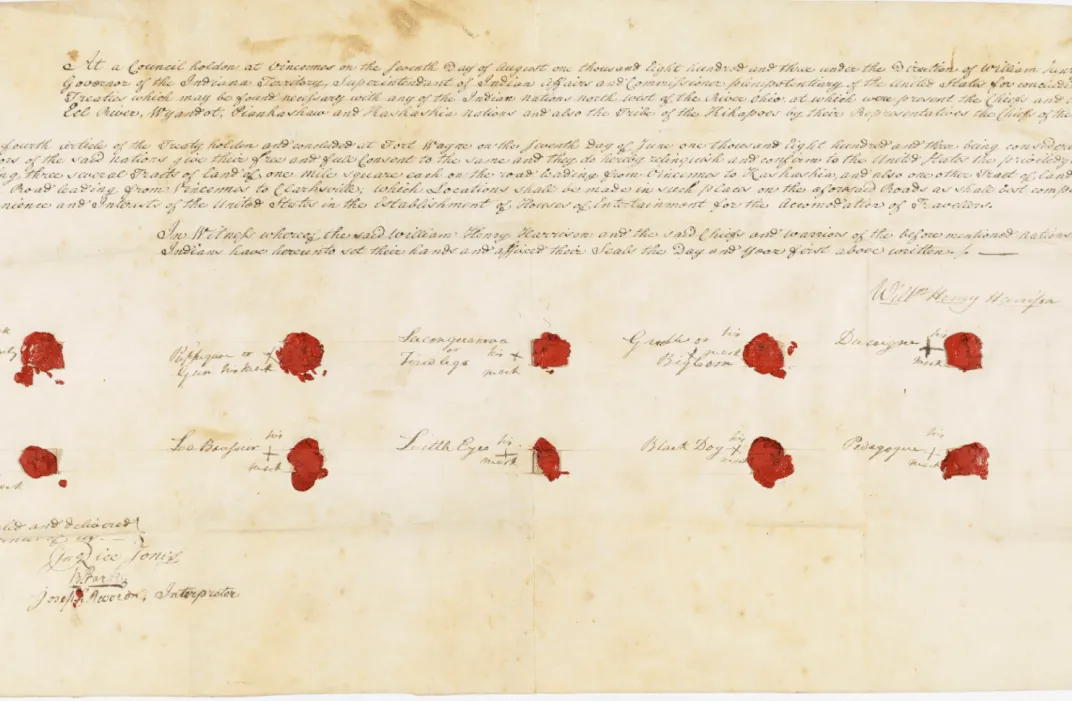 At a Council holden at Vincennes on the Seventh Day of August one thousand Eight hundred and three under the Direction of William
Governor of the Indiana Territory, Superintendant of Indian Affairs and Commissioner plenipotentiary of the United States for
Treaties which may be found necessary with any of the Indian nations north west of the River Ohio at which were present the Chiefs and
Eel River, Wyandot, Piankashaw and Kaskaskia nations and also the Tribe of the Kikapoes by their Representatives the Chiefs of the
fourth article of the Treaty holden and concluded at Fort Wayne on the Seventh day of June one thousand Eight hundred and three being
of the said nations give their free and full Consent to the same and they do hereby relinquish and confirm to the United States the
three several Tracts of Land of one mile square each on the road leading from Vincennes to Kaskaskia, and also one other Tract of Land
Road leading from Vincennes to Clarksville; which Locations shall be made in such places on the aforesaid Roads as shall best
and Interests of the United States in the Establishment of Houses of Entertainment for the Accomodation of Travellers.
In Witness whereof the said William Henry Harrison and the said Chiefs and warriors of the before mentioned nations
Indians have hereunto set their hands and affixed their Seals the Day and Year first above written
Willm Henry Harrison
or
Gun his mark
or
his
mark
or his
mark
Ducoigne his
mark
his
mark
Little Eyes his
mark
Black Dog his
mark
Pedagogue his
mark
and delivered
Jno Rice Jones
B. Parke
Joseph Barron, Interpreter